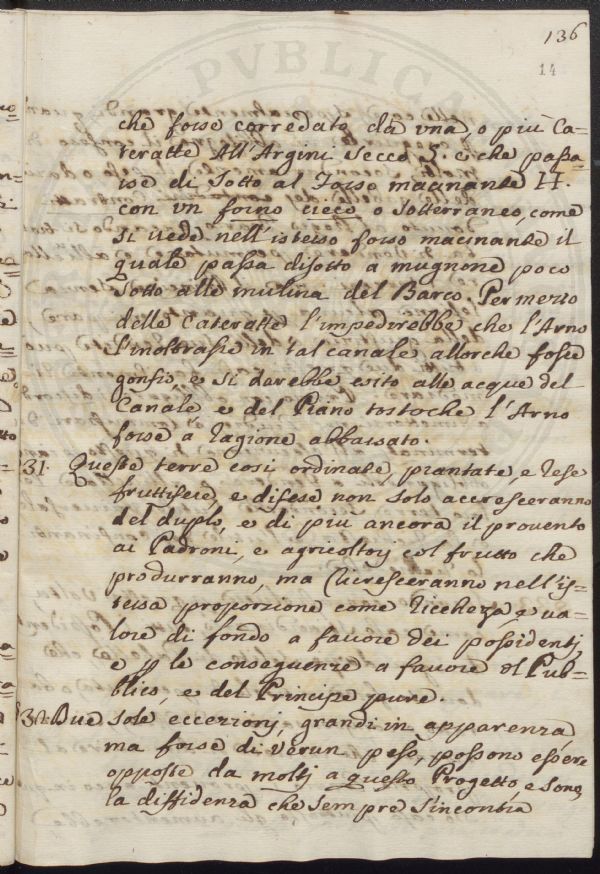 136
14
che fosse corredato da una, o più Ca=
teratte All'Argini Secco 5. e che passa=
sse di Sotto al Fosso macinante H.
con un fosso cieco o Sotterraneo, come
si vede nell'istesso fosso macinante il
quale passa disotto a mugnone poco
Sotto alle mulina del Barco. Per mezzo
delle Cateratte l'impedirebbe, che l'Arno
s'inoltrasse in tal canale allorche fosse
gonfio, e si darebbe esito alle acque del
Canale e del Piano tostoche l'Arno
fosse a ragione abbassato.
31. Queste terre così ordinate, piantate, e rese
fruttifere, e difese non solo accresceranno
del duplo, e di più ancora il provento
ai Padroni, e agricoltorj col frutto che
produrranno, ma ricresceranno nell'is=
tessa proporzione come ricchezza e va=
lore di fondo a favore dei possidentj,
e p le conseguenze a favore del Pub=
blico, e del Principe pure.
32. Due sole eccezionj, grandi in apparenza
ma forse di verun peso, possono essere
opposte da moltj a questo Progetto, e sono
la diffidenza che sempre s'incontra